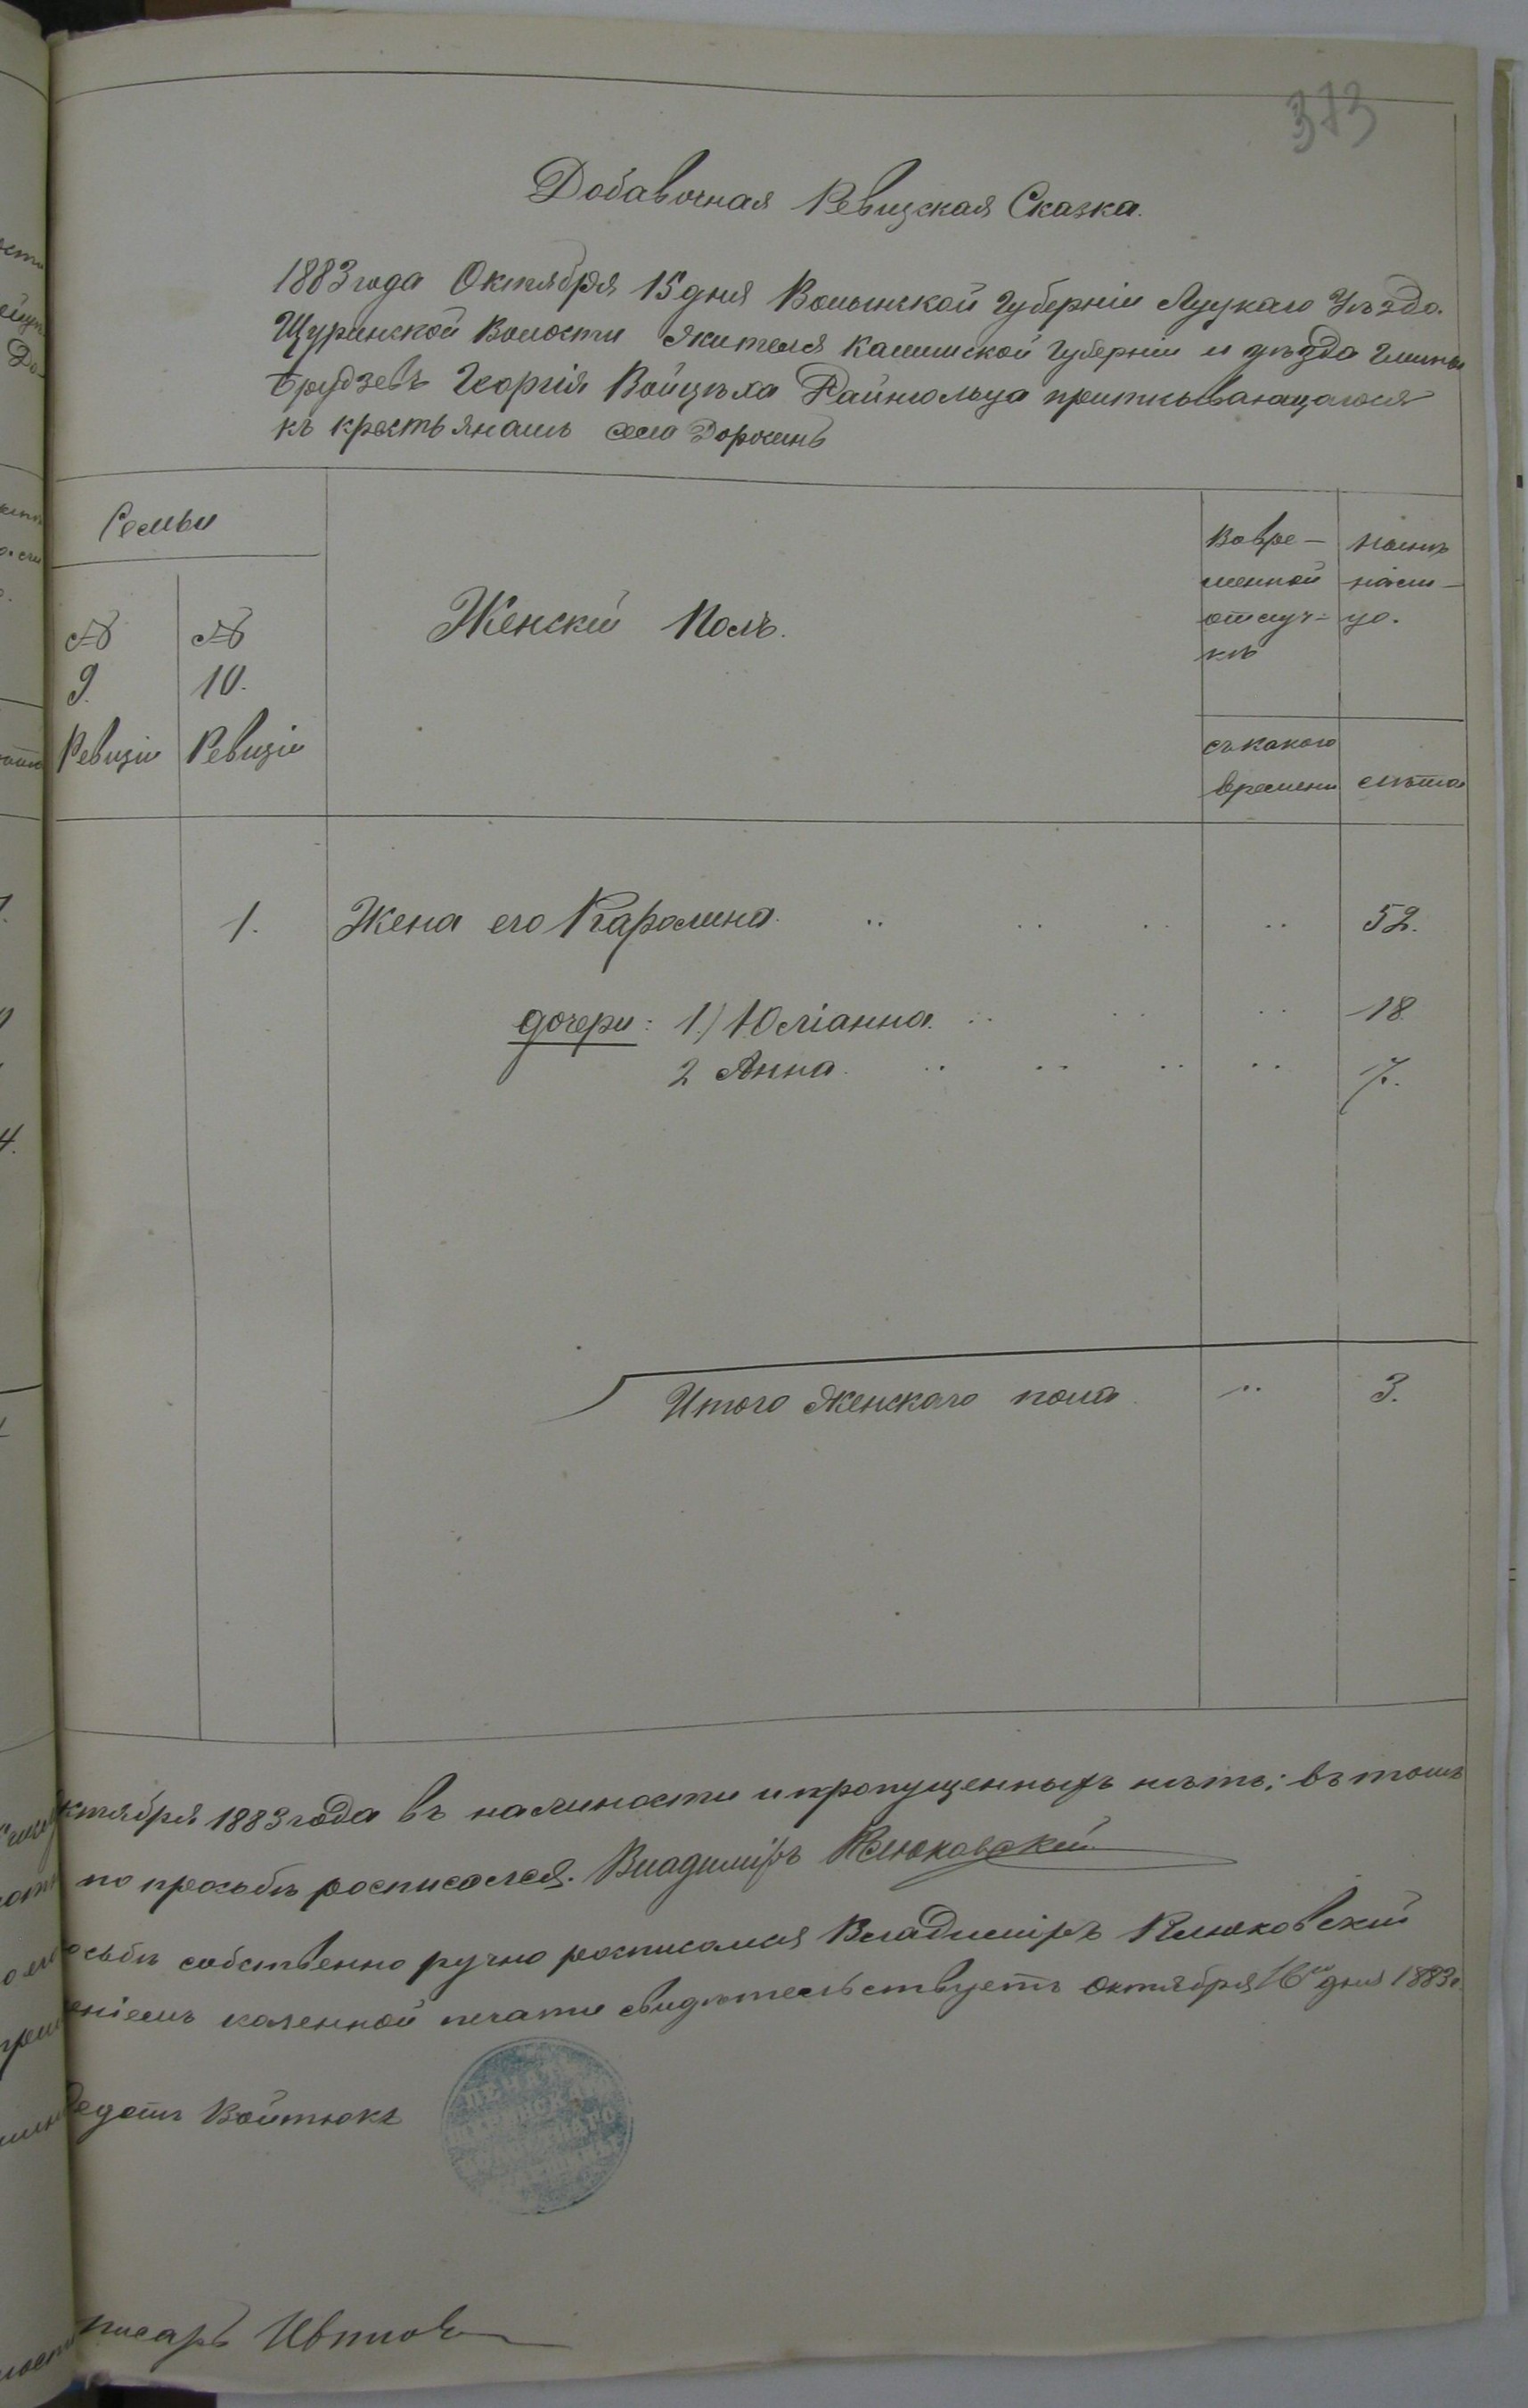 373
Добавочная Ревизская Сказка.
1883 года Октября 15 дня Волынской Губерніи Луцкаго Уѣзда.
Щуринской Волости жителя Калишской Губерніи и уѣзда Гмины
Брудзевъ Георгія Войцѣха Райнгольца приписывающагося
къ крестьянамъ села Доросинь
Семьи
№ 9. Ревизіи
№ 10. Ревизіи
Женскій Полъ.
Во вре-
менной
отлуч-
кѣ
съ какого
времени
Налицо
лѣта
1. Жена его Каролина. .. .. .. .. 52.
дочери: 1) Юліанна. .. .. .. 18
2 Анна. .. .. .. .. 7.
Итого женскаго пола .. 3.
ктября 1883 года въ наличности и пропущенныхъ нѣтъ; въ томъ
по просьбѣ росписался. Владиміръ Клюковскій
осьбѣ собственно ручно росписался Владиміръ Клюковскій
еніемъ казенной печати свидѣтельствуетъ Октября 16 дня 1883 г.
Федотъ Войтюкъ
писарь